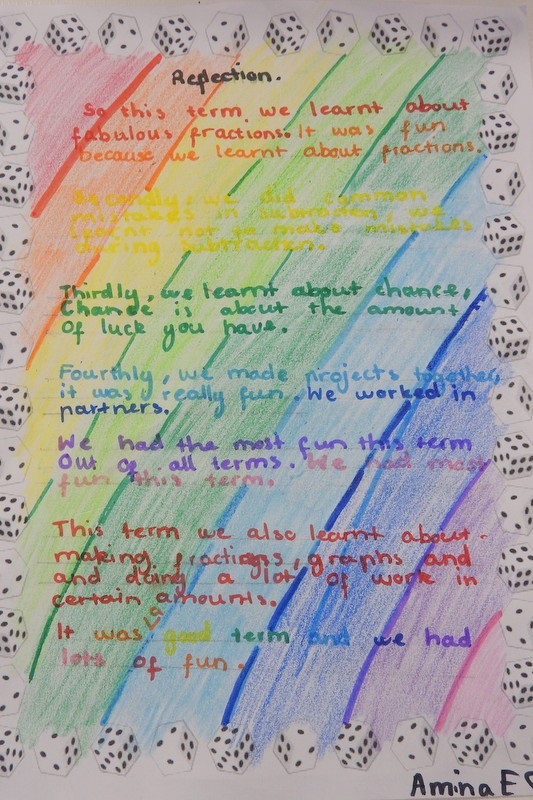 Reflection.
So this term we learnt about
fabulous fractions. It was fun
because we learnt about fractions.
Secondly, we did common
mistakes in subtraction, we
learnt not to make mistakes
during subtraction.
Thirdly, we learnt about chance,
Chance is about the amount
of luck you have.
Fourthly, we made projects together,
it was really fun. We worked in
partners.
We had the most fun this term
Out of all terms. We had most
fun this term.
This term we also learnt about
making fractions, graphs and
and doing a lot of work in
certain amounts.
It was a good term and we had
lots of fun.
Amina E